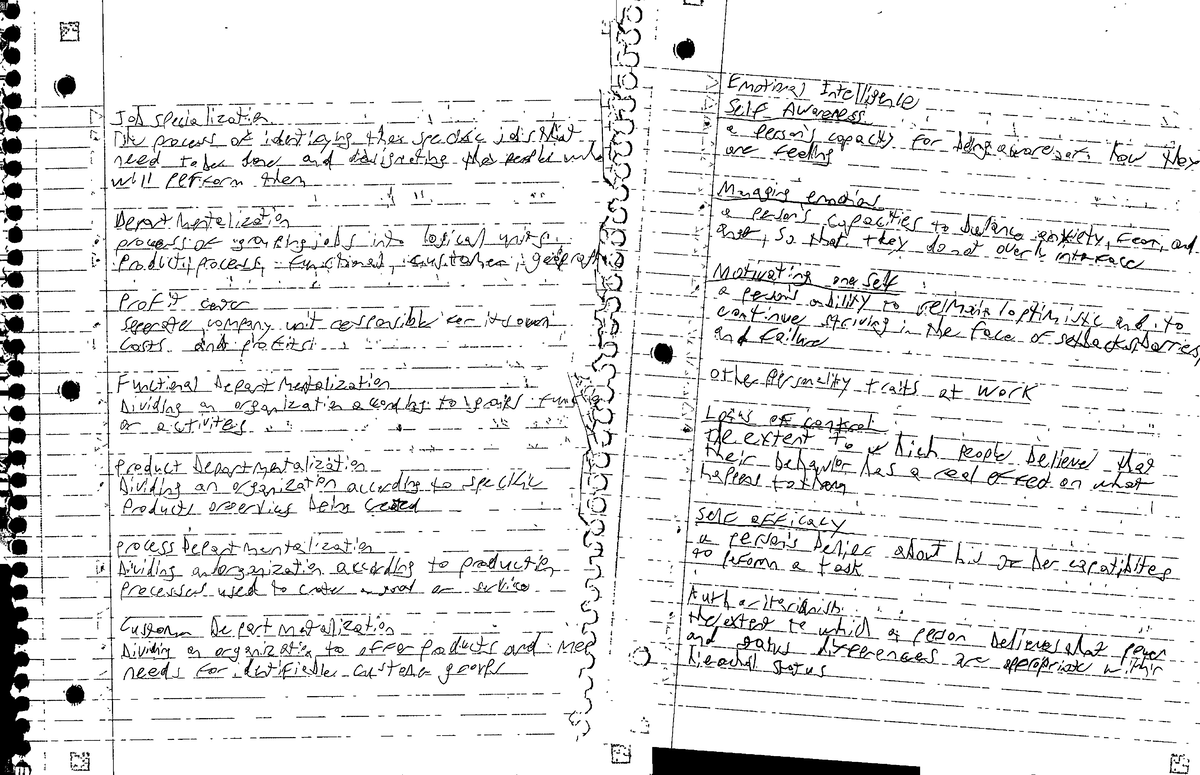 Job specialization
The process of identifying the specific jobs that
need to be done and designating the people who
will perform them
Departmentalization
process of grouping jobs into logical units.
Product, process, functional, customer, geograph
Profit
seperate company unit responsible for its own
costs and profits
Functional Departmentalization
Dividing an organization according to groups funct
or activites
product Departmentalization
Dividing an organization according to specific
products or being created
process Departmentalization
Dividing an organization according to production
processes used to create a good or service
Customer Departmentalization
Dividing an organization to offer products and meet
needs for identifiable customer groups
Emotional Intelligence
Self Awareness
a person's capacity for being aware of how they
are feeling
Managing emotions
a person's capacities to balance anxiety, fear, and
anger, so that they do not overly interface
Motivating oneself
a person's ability to remain optimistic and to
continue striving in the face of setbacks, barries
and failure
other personality traits at work
Locus of control
the extent to which people believe that
their behavior has a real effect on what
happens to them
Self efficacy
a person's belief about his or her capabilites
to perform a task
the extent to which a person believes that power
and status differences are appropriate within
status